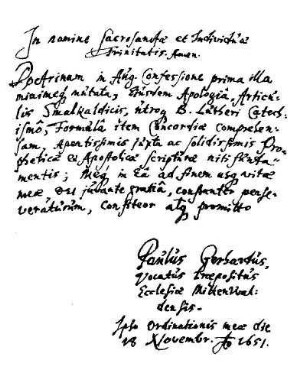 In nomine Sacrosanctæ et Individuæ
Trinitatis. Amen.
Doctrinam in Aug. Confessione prima illa
minimeq; mutata, Ejusdem Apologia, Articu-
lis Smalkaldicis, utroq; B. Lutheri Catech-
ismo, Formula item Concordiæ comprehen-
sam, Apertissimis juxta ac solidissimis Pro-
pheticæ et Apostolicæ scripturæ niti funda-
mentis; Meq; in Ea ad finem usq; vitæ
meæ Deo juvante gratia, constanter perse-
veraturum, confiteor atq; promitto
Paulus Gerhardus,
Vocatus Præpositus
Ecclesiæ Mittenwal-
densis.
Ipso Ordinationis meæ die
18 Novembr. Ao 1651.